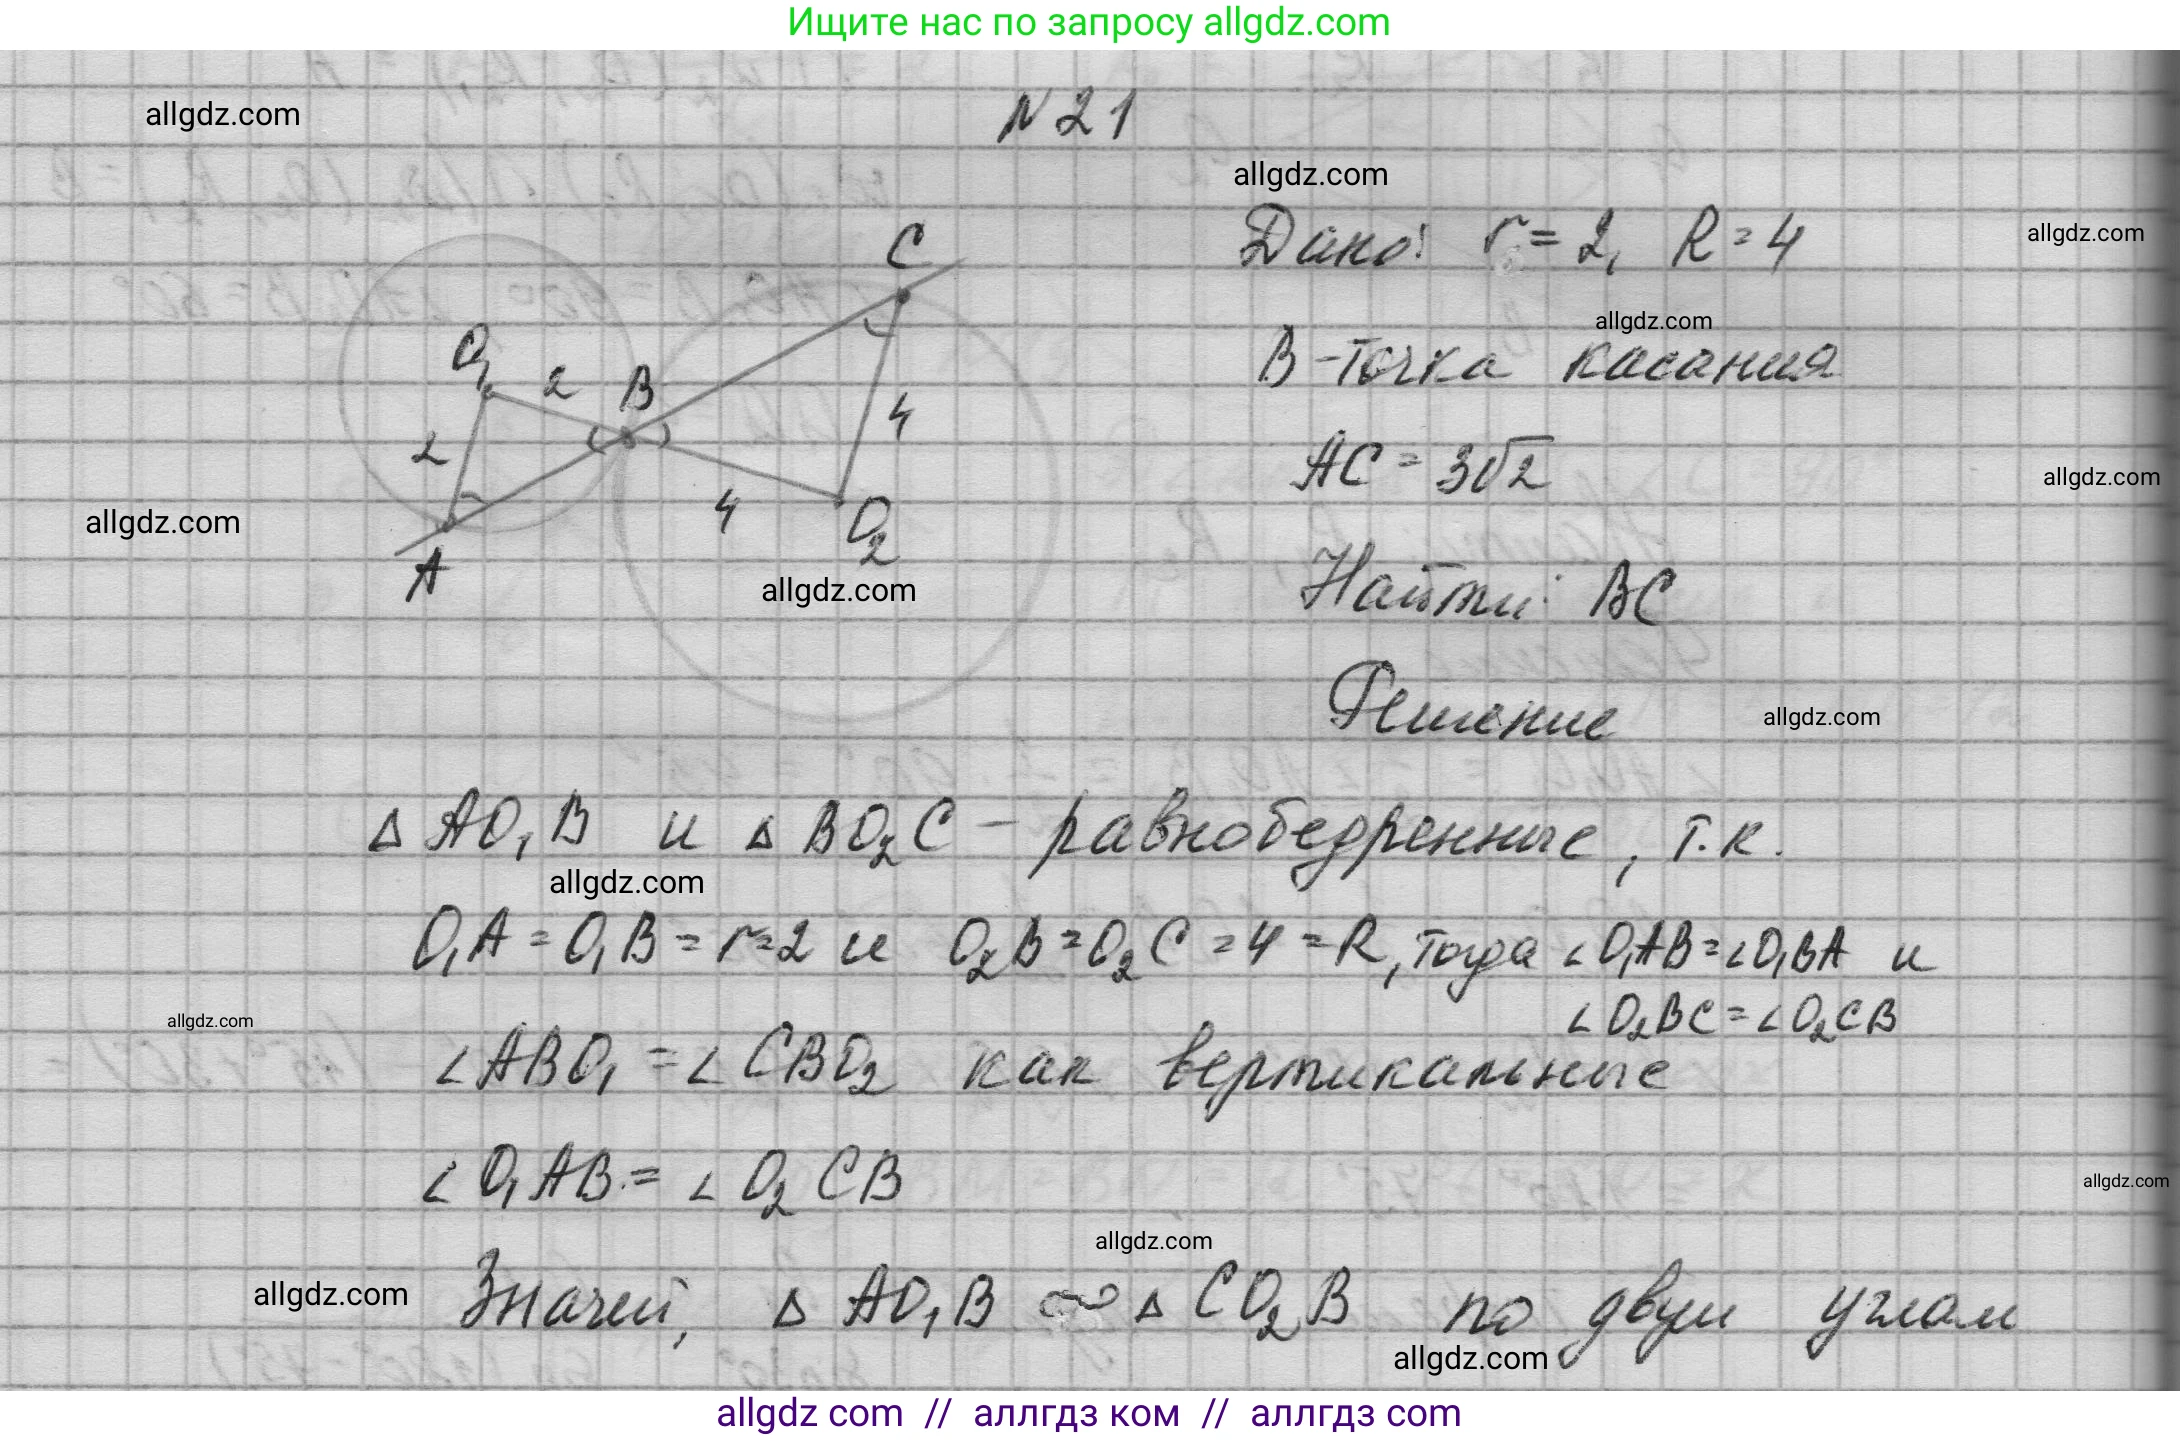 Ищите нас по запросу allgdz.com
allgdz.com
N 21
allgdz.com
Дано: r = 2, R = 4
allgdz.com
C
allgdz.com
O₁ 2 B
B - точка касания
2 4
AC = 3√2
allgdz.com
allgdz.com
4 O₂
A
allgdz.com
Найти: BC
Решение
allgdz.com
Δ AO₁B и Δ BO₂C - равнобедренные, т.к.
allgdz.com
O₁A = O₁B = r = 2 и O₂B = O₂C = 4 = R, тогда ∠O₁AB = ∠O₁BA и
∠O₂BC = ∠O₂CB
allgdz.com
∠ABO₁ = ∠CBO₂ как вертикальные
∠O₁AB = ∠O₂CB
allgdz.com
allgdz.com
allgdz.com
Значит, Δ AO₁B ∾ Δ CO₂B по двум углам
allgdz.com
allgdz com // аллгдз ком // аллгдз com